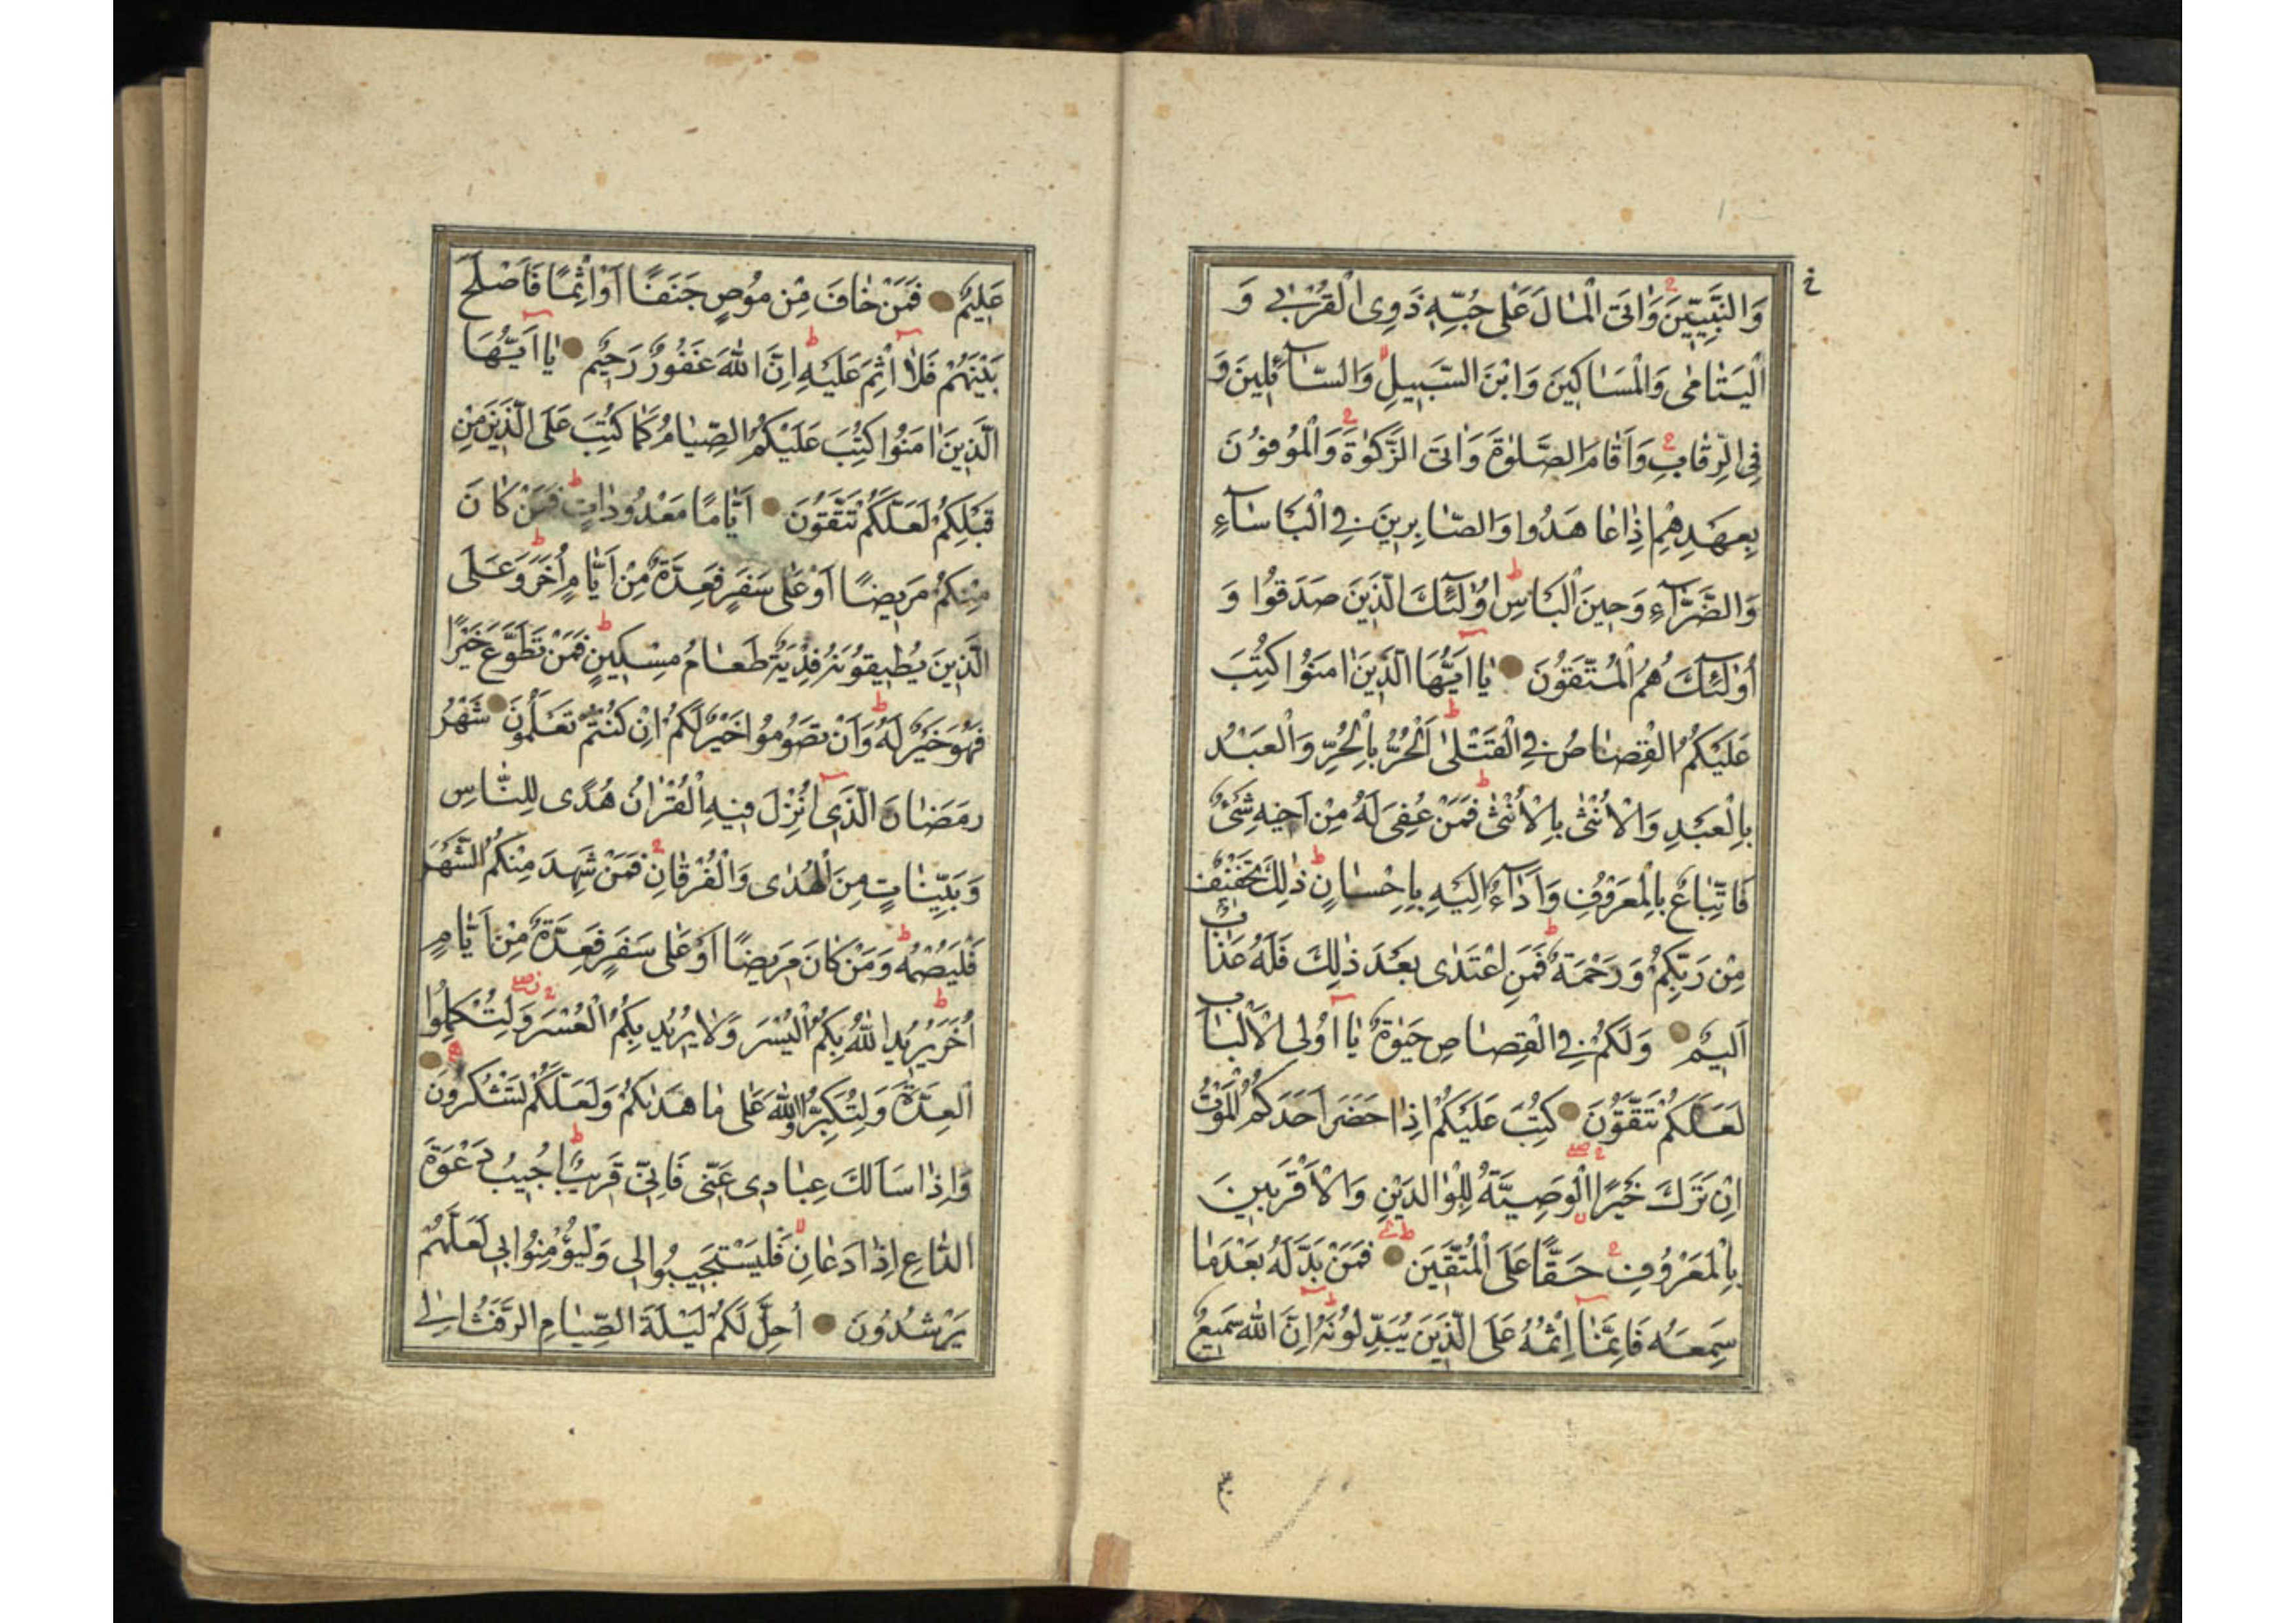 وَالنَّبِيِّينَ وَاٰتَى الْمٰالَ عَلٰى حُبِّهِ ذَوِى الْقُرْبٰى وَ
الْيَتٰامٰى وَالْمَسٰاكِينَ وَابْنَ السَّبِيلِ وَالسّٰآئِلِينَ وَ
فِى الرِّقٰابِ وَاَقٰامَ الصَّلٰوةَ وَاٰتَى الزَّكٰوةَ وَالْمُوفُونَ
بِعَهْدِهِمْ اِذٰا عٰاهَدُوا وَالصّٰابِرِينَ فِى الْبَاْسٰآءِ
وَالضَّرّٰآءِ وَحِينَ الْبَاْسِ اُولٰئِكَ الَّذِينَ صَدَقُوا وَ
اُولٰئِكَ هُمُ الْمُتَّقُونَ يٰا اَيُّهَا الَّذِينَ اٰمَنُوا كُتِبَ
عَلَيْكُمُ الْقِصٰاصُ فِى الْقَتْلٰى اَلْحُرُّ بِالْحُرِّ وَالْعَبْدُ
بِالْعَبْدِ وَالْاُنْثٰى بِالْاُنْثٰى فَمَنْ عُفِىَ لَهُ مِنْ اَخِيهِ شَىْءٌ
فَاتِّبٰاعٌ بِالْمَعْرُوفِ وَاَدٰآءٌ اِلَيْهِ بِاِحْسٰانٍ ذٰلِكَ تَخْفِيفٌ
مِنْ رَبِّكُمْ وَرَحْمَةٌ فَمَنِ اعْتَدٰى بَعْدَ ذٰلِكَ فَلَهُ عَذٰابٌ
اَلِيمٌ وَلَكُمْ فِى الْقِصٰاصِ حَيٰوةٌ يٰا اُولِى الْاَلْبٰابِ
لَعَلَّكُمْ تَتَّقُونَ كُتِبَ عَلَيْكُمْ اِذٰا حَضَرَ اَحَدَكُمُ الْمَوْتُ
اِنْ تَرَكَ خَيْرًا الْوَصِيَّةُ لِلْوٰالِدَيْنِ وَالْاَقْرَبِينَ
بِالْمَعْرُوفِ حَقًّا عَلَى الْمُتَّقِينَ فَمَنْ بَدَّلَهُ بَعْدَمٰا
سَمِعَهُ فَاِنَّمٰا اِثْمُهُ عَلَى الَّذِينَ يُبَدِّلُونَهُ اِنَّ اللّٰهَ سَمِيعٌ
عَلِيمٌ فَمَنْ خٰافَ مِنْ مُوصٍ جَنَفًا اَوْ اِثْمًا فَاَصْلَحَ
بَيْنَهُمْ فَلٰا اِثْمَ عَلَيْهِ اِنَّ اللّٰهَ غَفُورٌ رَحِيمٌ يٰا اَيُّهَا
الَّذِينَ اٰمَنُوا كُتِبَ عَلَيْكُمُ الصِّيٰامُ كَمٰا كُتِبَ عَلَى الَّذِينَ مِنْ
قَبْلِكُمْ لَعَلَّكُمْ تَتَّقُونَ اَيّٰامًا مَعْدُودٰاتٍ فَمَنْ كٰانَ
مِنْكُمْ مَرِيضًا اَوْ عَلٰى سَفَرٍ فَعِدَّةٌ مِنْ اَيّٰامٍ اُخَرَ وَعَلَى
الَّذِينَ يُطِيقُونَهُ فِدْيَةٌ طَعٰامُ مِسْكِينٍ فَمَنْ تَطَوَّعَ خَيْرًا
فَهُوَ خَيْرٌ لَهُ وَاَنْ تَصُومُوا خَيْرٌ لَكُمْ اِنْ كُنْتُمْ تَعْلَمُونَ شَهْرُ
رَمَضٰانَ الَّذِى اُنْزِلَ فِيهِ الْقُرْاٰنُ هُدًى لِلنّٰاسِ
وَبَيِّنٰاتٍ مِنَ الْهُدٰى وَالْفُرْقٰانِ فَمَنْ شَهِدَ مِنْكُمُ الشَّهْرَ
فَلْيَصُمْهُ وَمَنْ كٰانَ مَرِيضًا اَوْ عَلٰى سَفَرٍ فَعِدَّةٌ مِنْ اَيّٰامٍ
اُخَرَ يُرِيدُ اللّٰهُ بِكُمُ الْيُسْرَ وَلٰا يُرِيدُ بِكُمُ الْعُسْرَ وَلِتُكْمِلُوا
الْعِدَّةَ وَلِتُكَبِّرُوا اللّٰهَ عَلٰى مٰا هَدٰىكُمْ وَلَعَلَّكُمْ تَشْكُرُونَ
وَاِذٰا سَاَلَكَ عِبٰادِى عَنِّى فَاِنِّى قَرِيبٌ اُجِيبُ دَعْوَةَ
الدّٰاعِ اِذٰا دَعٰانِ فَلْيَسْتَجِيبُوا لِى وَلْيُؤْمِنُوا بِى لَعَلَّهُمْ
يَرْشُدُونَ اُحِلَّ لَكُمْ لَيْلَةَ الصِّيٰامِ الرَّفَثُ اِلٰى